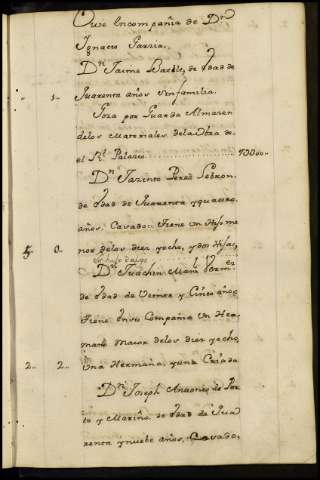 Vive en compañia de Dn
Ignacio Parria.
Dn Jaime Barble, de edad de
1 Quarenta años sin familia.
Goza por Guarda Almacen
de los Materiales de la Obra de
el Rl Palacio 700
Dn Jazinto Perez
de edad de Quarenta y quatro
años, Casado: tiene un Hijo me
5 0 nor de los diez y ocho, y dos Hijas,
Dn Juachin
de edad de Veinte y Cinco años
tiene en su Compañia un Her
mano maior de los diez y ocho,
2 2 una Hermana, y una Criada
Dn Joseph Antonio de Por
to y Mariña de edad de Qua
renta y nuebe años, Casado,